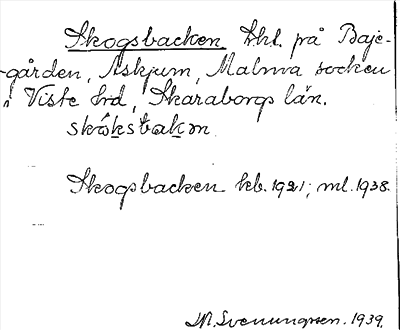 Skogsbacken, bhl. på Baje-
gården, Askjum, Malma socken
i Viste hrd, Skaraborgs län.
skåksbakɔn
Skogsbacken kb. 1921; ml. 1938.
M. Svenungsson. 1939.